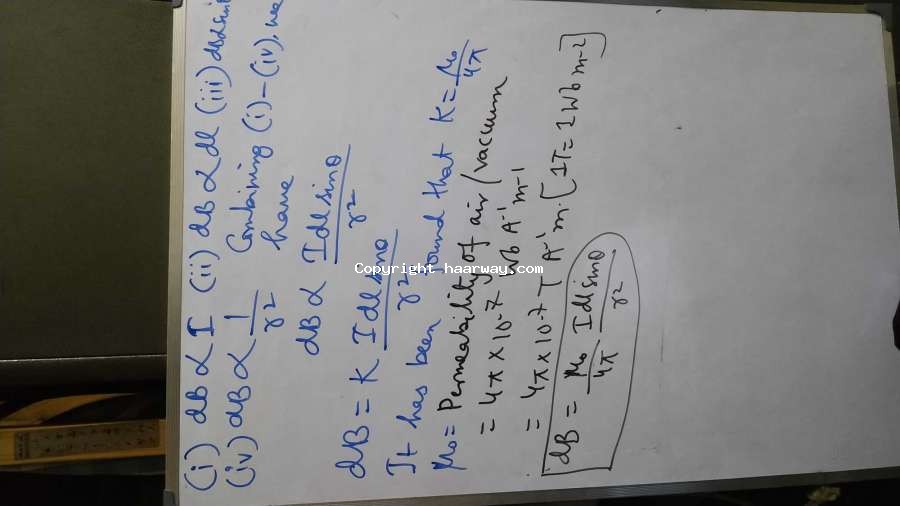 (i) dB ∝ I (ii) dB ∝ dl (iii) dB ∝ sinθ
(iv) dB ∝ 1/r2 Combining (i)-(iv), we
have
dB ∝ Idl sinθ/r2
dB = K Idl sinθ/r2
It has been found that K = μ0/4π
μ0 = Permeability of air/vaccum
= 4π × 10-7 Wb A-1 m-1
= 4π × 10-7 T A-1 m. [1T = 1 Wb m-2]
dB = μ0/4π Idl sinθ/r2
Copyright haarway.com